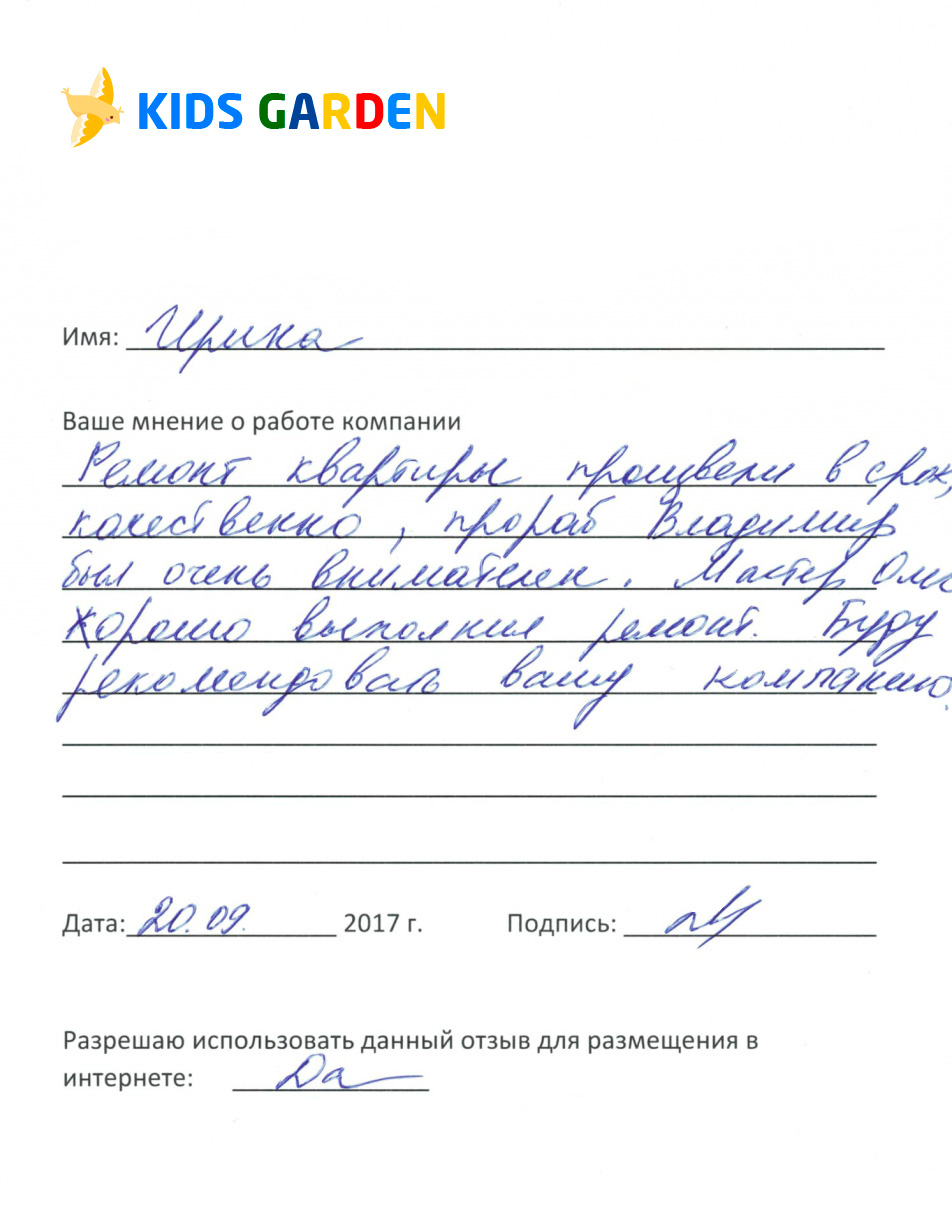 KIDS GARDEN
Имя: Ирина
Ваше мнение о работе компании
Ремонт квартиры произвели в срок,
качественно, прораб Владимир
был очень внимателен. Мастер
Хорошо выполнил ремонт. Буду
рекомендовать вашу компанию.
Дата: 20.09. 2017 г. Подпись:
Разрешаю использовать данный отзыв для размещения в
интернете: Да